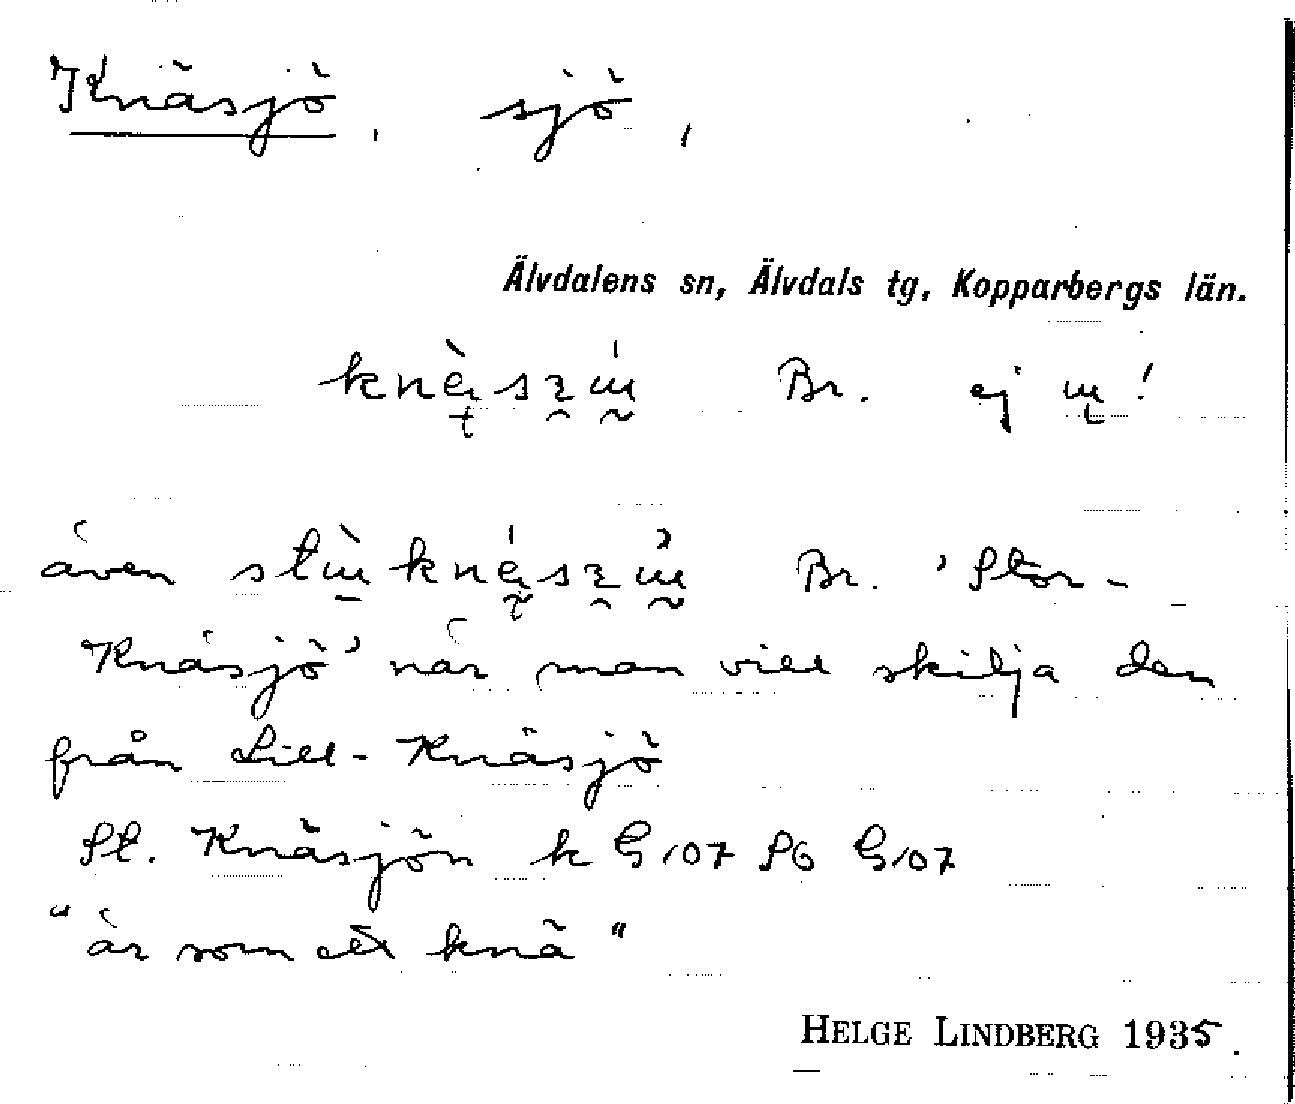 Knäsjö, sjö,
Älvdalens sn, Älvdals tg, Kopparbergs län.
Br. ej !
även Br. 'Stor-
Knäsjö' när man vill skilja den
från Lill-Knäsjö
St. Knäsjön k G107 SO G107
"är som ett knä"
HELGE LINDBERG 1935.